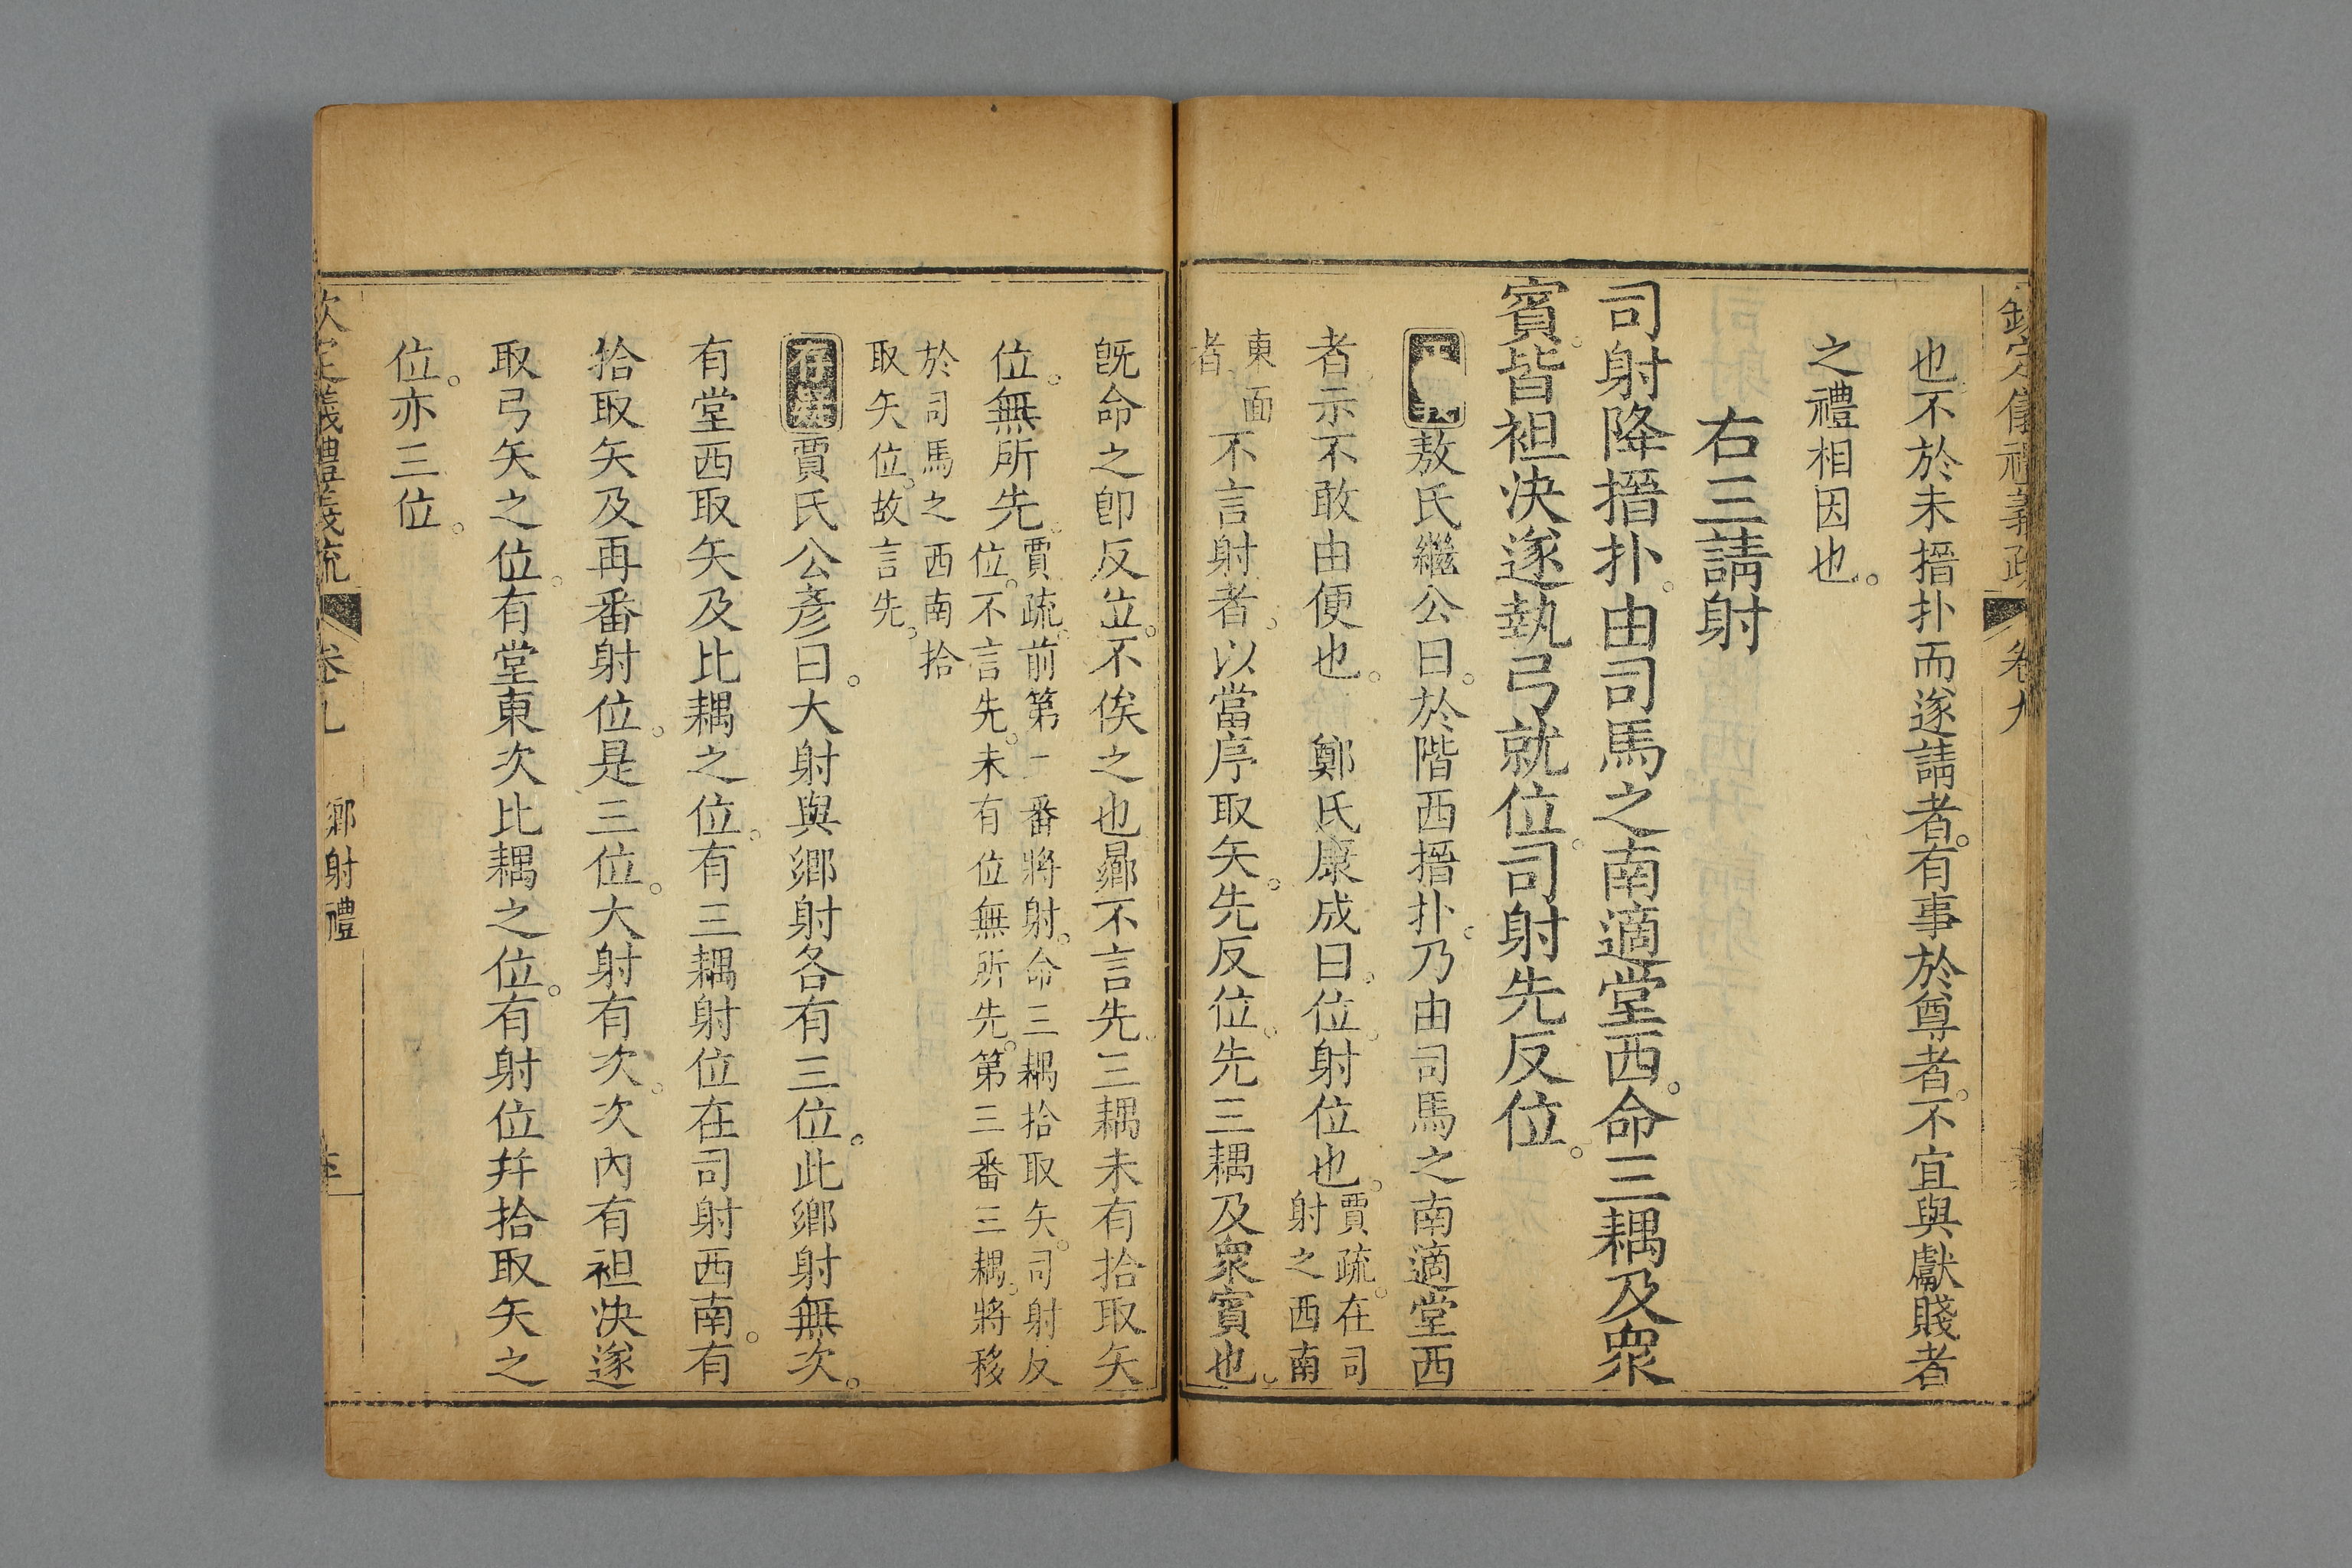 欽定儀禮義疏 卷九
也不於未搢扑而遂請者。有事於尊者。不宜與獻賤者
之禮相因也。
右三請射
司射降搢扑。由司馬之南適堂西。命三耦及衆
賓。皆袒決遂執弓就位。司射先反位。
敖氏繼公曰。於階西搢扑。乃由司馬之南適堂西
者。示不敢由便也。 鄭氏康成曰。位。射位也。賈疏。在司射之西南
東面者。不言射者。以當序取矢。先反位。先三耦及衆賓也。
旣命之卽反位。不俟之也。曏不言先。三耦未有拾取矢
位。無所先。賈疏。前第一番將射。命三耦拾取矢。司射反位。不言先。未有位無所先。第三番三耦。將移
於司馬之西南拾取矢位。故言先。
存疑賈氏公彥曰。大射與鄉射各有三位。此鄉射無次。
有堂西取矢及比耦之位。有三耦射位在司射西南。有
拾取矢及再番射位。是三位。大射有次。次內有袒決遂
取弓矢之位。有堂東次比耦之位。有射位并拾取矢之
位。亦三位。
欽定義禮義疏 卷九 鄉射禮